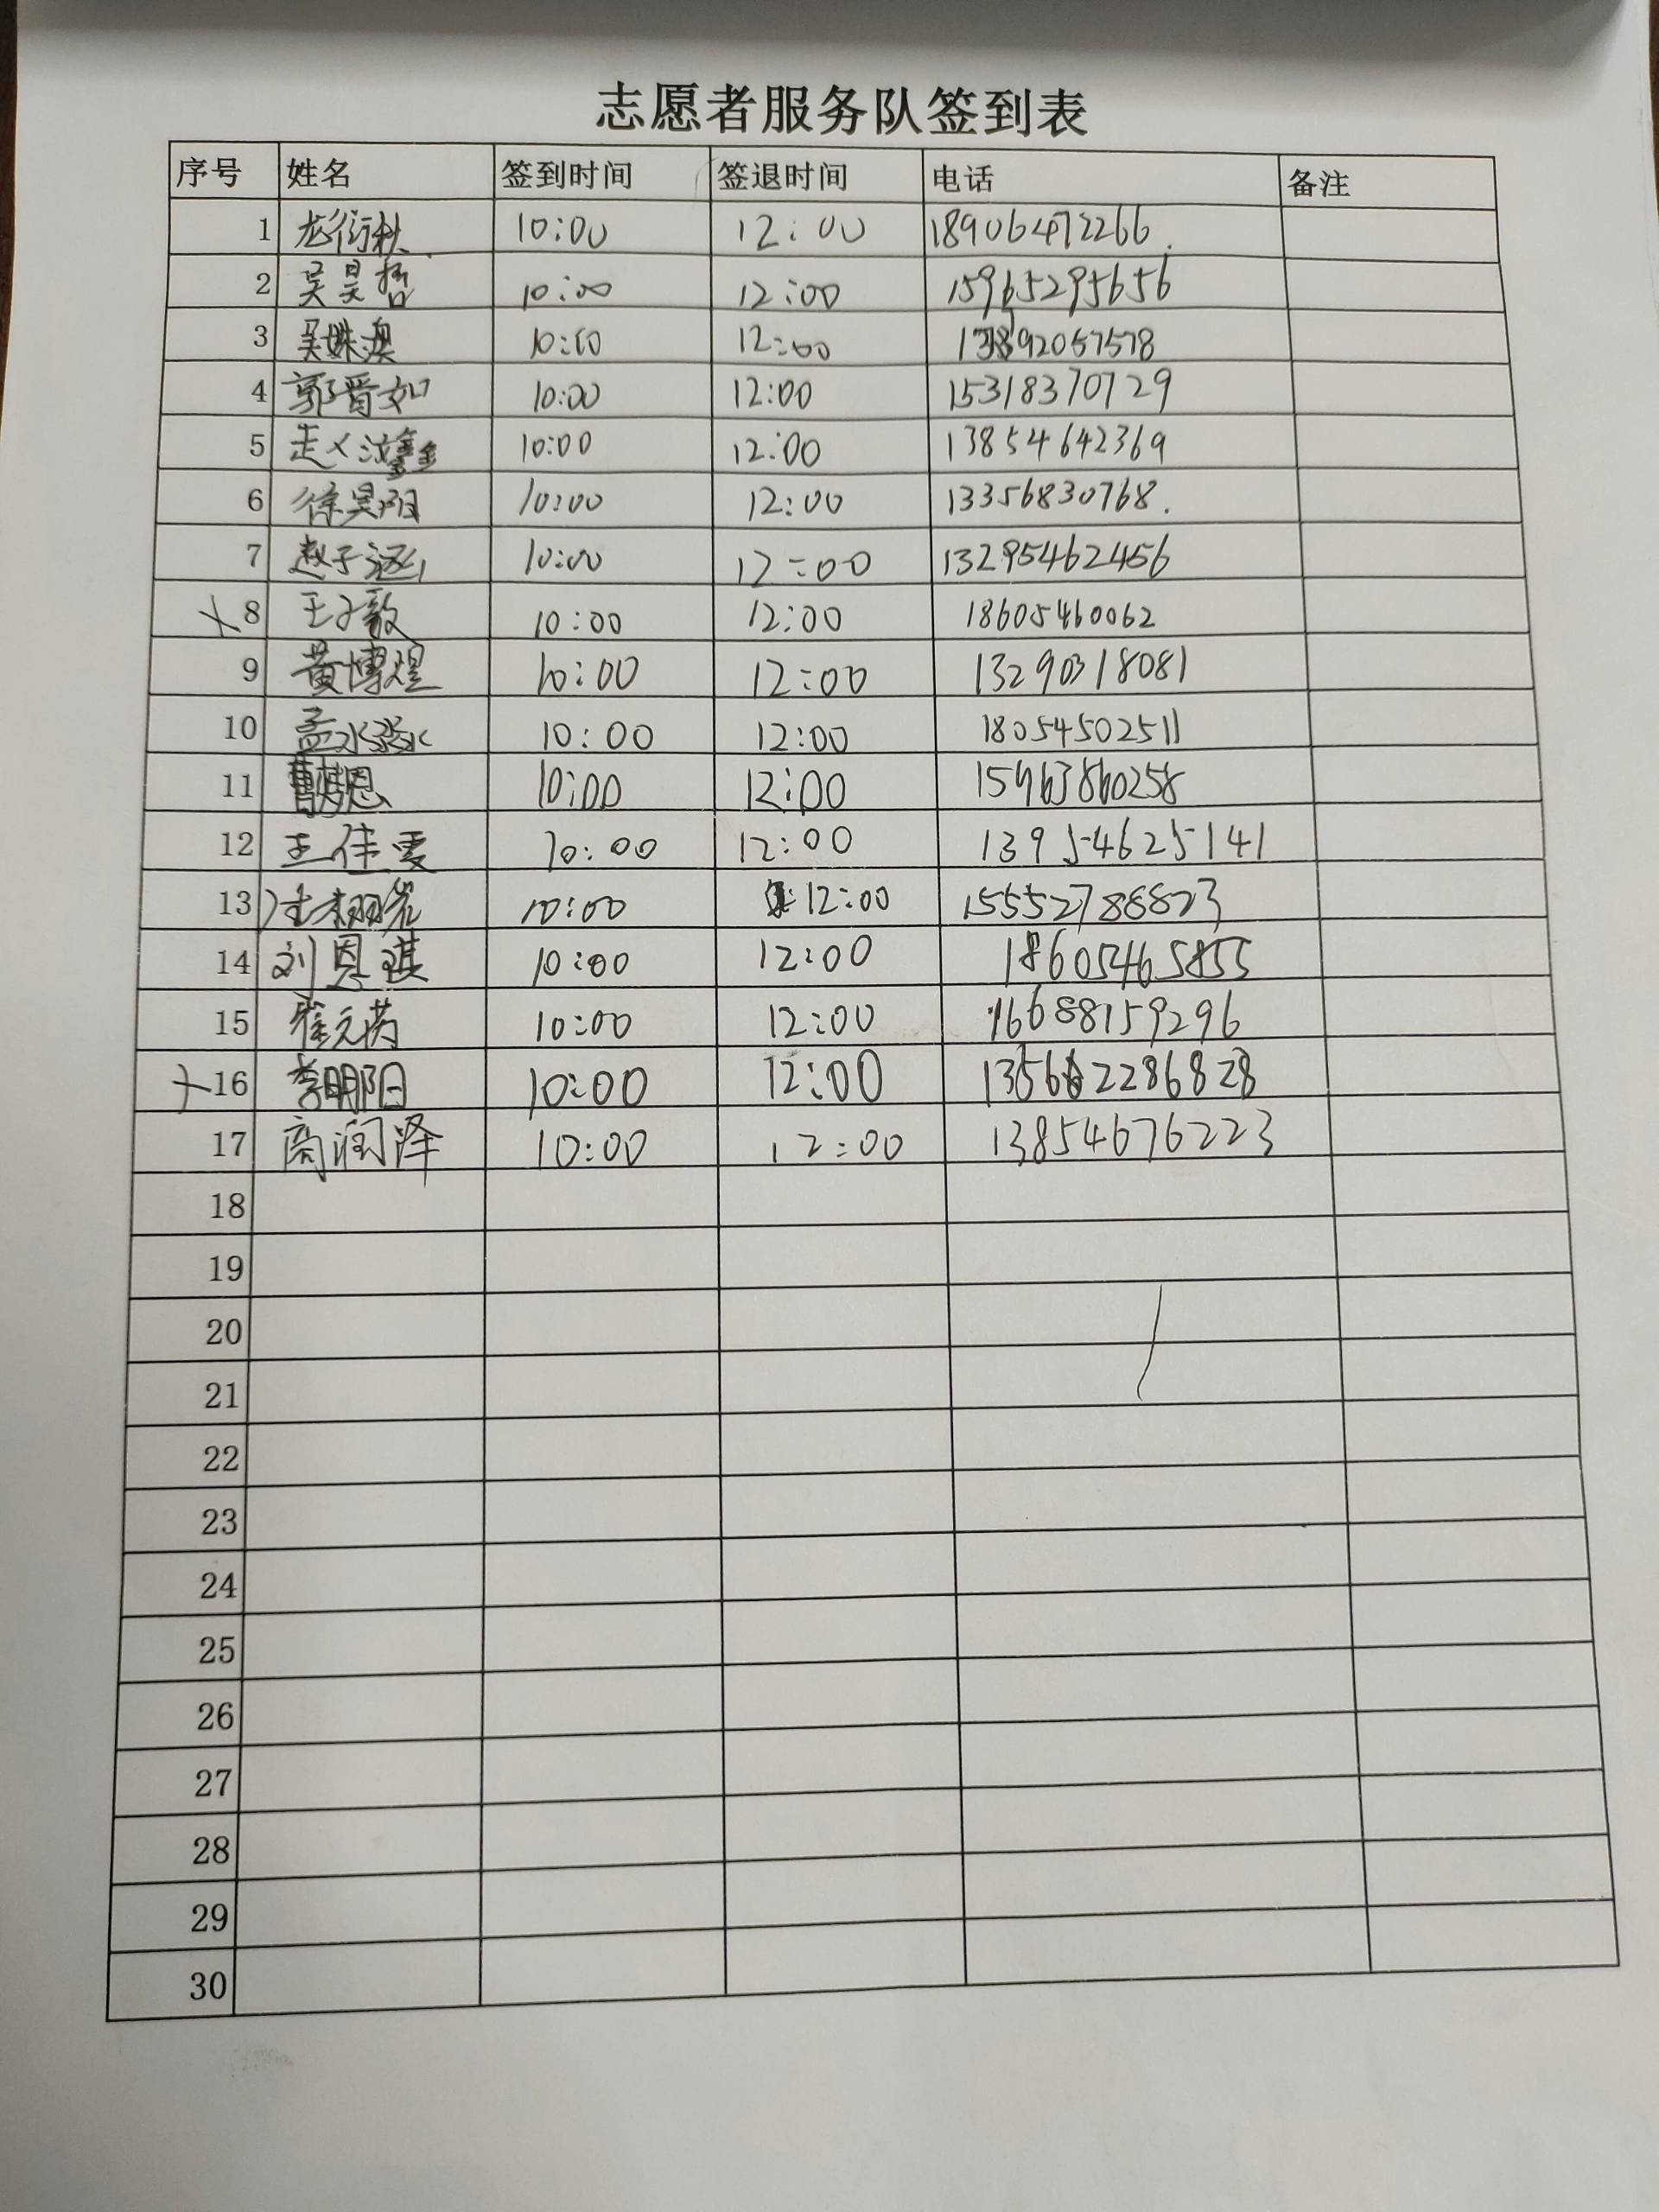 志愿者服务队签到表
序号 姓名 签到时间 签退时间 电话 备注
1 龙衍秋 10:00 12:00 18906472266.
2 吴昊哲 10:00 12:00 15965295656
3 吴姝澳 10:00 12:00
4 郭晋如 10:00 12:00 15318370729
5 赵汶鑫 10:00 12:00 13854642369
6 徐昊阳 10:00 12:00 13356830768.
7 赵子涵 10:00 12:00 13295462456
8 王子毅 10:00 12:00 18605460062
9 黄博煜 10:00 12:00 13290318081
10 孟冰 10:00 12:00 18054502511
11 曹梦恩 10:00 12:00 15963860258
12 王佳雯 10:00 12:00 13954625141
13 10:00 12:00 15552788823
14 刘恩琪 10:00 12:00 18605465855
15 崔元芮 10:00 12:00 16688159296
16 李明阳 10:00 12:00
17 高润泽 10:00 12:00 13854676223
18
19
20
21
22
23
24
25
26
27
28
29
30